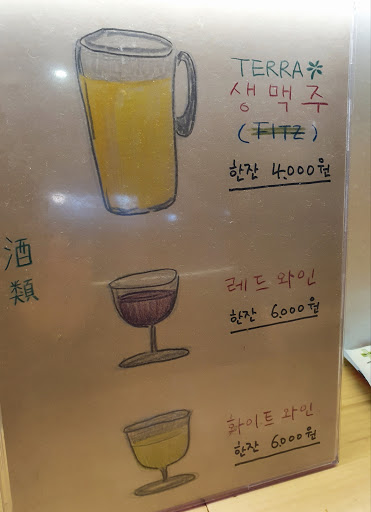 TERRA
생맥주
(FITZ)
한잔 4,000원
酒
類
레드와인
한잔 6,000원
화이트와인
한잔 6,000원